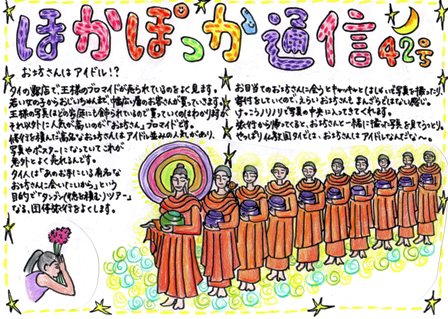 ほかぽっか通信42号
お坊さんはアイドル!?
タイの露店で、王様のブロマイドが売られているのをよく見ます。
若い女の子からおじいちゃんまで、幅広い層のお客さんが買っていきます。
王様の写真はどの家庭にも飾られているので買っていくのはわかりますが
それ以外に人気が高いのが「お坊さん」ブロマイドです。
修行を積んだ高名なお坊さんはアイドル並みの人気があり、
写真やポスターになっていて、これが
意外とよく売れるんです。
タイ人は「あのお寺にいる有名な
お坊さんに会いに行こう」という
目的で「タンブン(徳を積む)ツアー」
なる、団体旅行をよくします。
お目当てのお坊さんに会うとキャッキャとはしゃいで写真を撮ったり、
寄付をしていくので、えらいお坊さんもまんざらではない感じ。
けっこうノリノリで写真の中央に入ってきてくれます。
旅行から帰ってくると、お坊さんと一緒に撮った写真を見てうっとり。
やっぱり仏教国タイでは、お坊さんはアイドルなんだな〜。